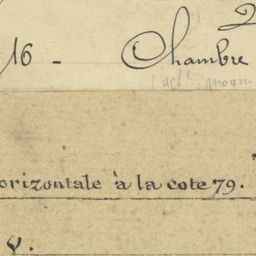 2
16 - Chambre
orizontale à la cote 79.